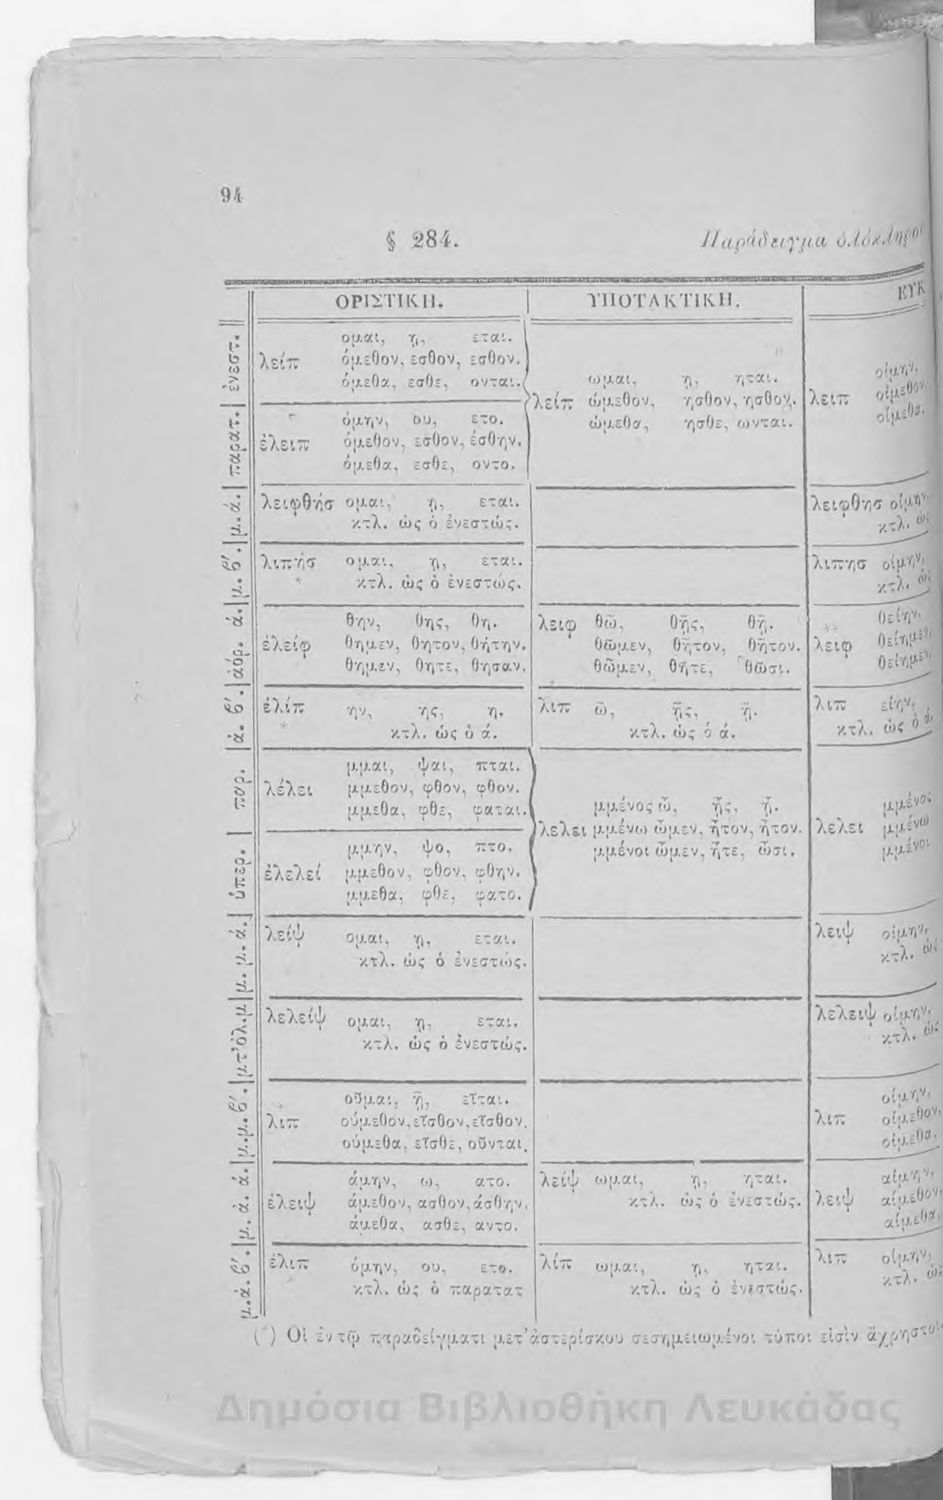 94
§ 284. Παράδειγμα
ΟΡΙΣΤΙΚΗ. ΥΠΟΤΑΚΤΙΚΗ. ΕΥΚ
ἐνεστ.
λείπ
ομαι, ῃ, εται.
όμεθον, εσθον, εσθον.
όμεθα, εσθε, ονται.
λείπ
ωμαι, ῃ, ηται.
ώμεθον, ησθον, ησθον.
ώμεθα, ησθε, ωνται.
λειπ
οίμην,
οίμεθον,
οίμεθα.
παρατ.
ἐλειπ
όμην, ου, ετο.
όμεθον, εσθον, έσθην.
όμεθα, εσθε, οντο.
μ. ά.
λειφθήσ ομαι, ῃ, εται.
κτλ. ὡς ὁ ἐνεστώς.
λειφθησ οίμην
κτλ. ὡς
μ. β'.
λιπήσ ομαι, ῃ, εται.
* κτλ. ὡς ὁ ἐνεστώς.
λιπησ οίμην,
κτλ. ὡς
ἀόρ. ά.
ἐλείφ
θην, θης, θη.
θημεν, θητον, θήτην.
θημεν, θητε, θησαν.
λειφ θῶ, θῇς, θῇ.
θῶμεν, θῆτον, θῆτον.
θῶμεν, θῆτε, θῶσι.
λειφ
θείην,
θείημεν
θείημεν,
ἀ. β'.
ἐλίπ ην, ης, η.
* κτλ. ὡς ὁ ά.
λιπ ῶ, ῇς, ῇ.
κτλ. ὡς ὁ ά.
λιπ είην,
κτλ. ὡς ὁ ά
παρ.
λέλει
μμαι, ψαι, πται.
μμεθον, φθον, φθον.
μμεθα, φθε, φαται.
λελει
μμένος ὦ, ᾖς, ᾖ.
μμένω ὦμεν, ἦτον, ἦτον.
μμένοι ὦμεν, ἦτε, ὦσι.
λελει
μμένος
μμένω
μμένοι
ὑπερ.
ἐλελεί
μμην, ψο, πτο.
μμεθον, φθον, φθην.
μμεθα, φθε, φατο.
μ. μ. ά.
λείψ ομαι, ῃ, εται.
κτλ. ὡς ὁ ἐνεστώς.
λειψ οίμην,
κτλ. ὡς
μτ'ὀλ.μ
λελείψ ομαι, ῃ, εται.
κτλ. ὡς ὁ ἐνεστώς.
λελειψ οίμην,
κτλ. ὡς
μ.μ.β'.
λιπ
οῦμαι, ῇ, εῖται.
ούμεθον, εῖσθον, εῖσθον.
ούμεθα, εῖσθε, οῦνται.
λιπ
οίμην,
οίμεθον,
οίμεθα,
μ. ἀ. ά.
ἐλειψ
άμην, ω, ατο.
άμεθον, ασθον, άσθην.
άμεθα, ασθε, αντο.
λείψ ωμαι, ῃ, ηται.
κτλ. ὡς ὁ ἐνεστώς.
λειψ
αίμην,
αίμεθον
αίμεθα,
μ.ἀ. β'.
ἐλιπ όμην, ου, ετο.
κτλ. ὡς ὁ παρατατ
λίπ ωμαι, ῃ, ηται.
κτλ. ὡς ὁ ἐνεστώς.
λιπ οίμην,
κτλ. ὡς
(*) Οἱ ἐν τῷ παραδείγματι μετ' ἀστερίσκου σεσημειωμένοι τύποι εἰσὶν ἄχρηστοι
Δημόσια Βιβλιοθήκη Λευκάδας